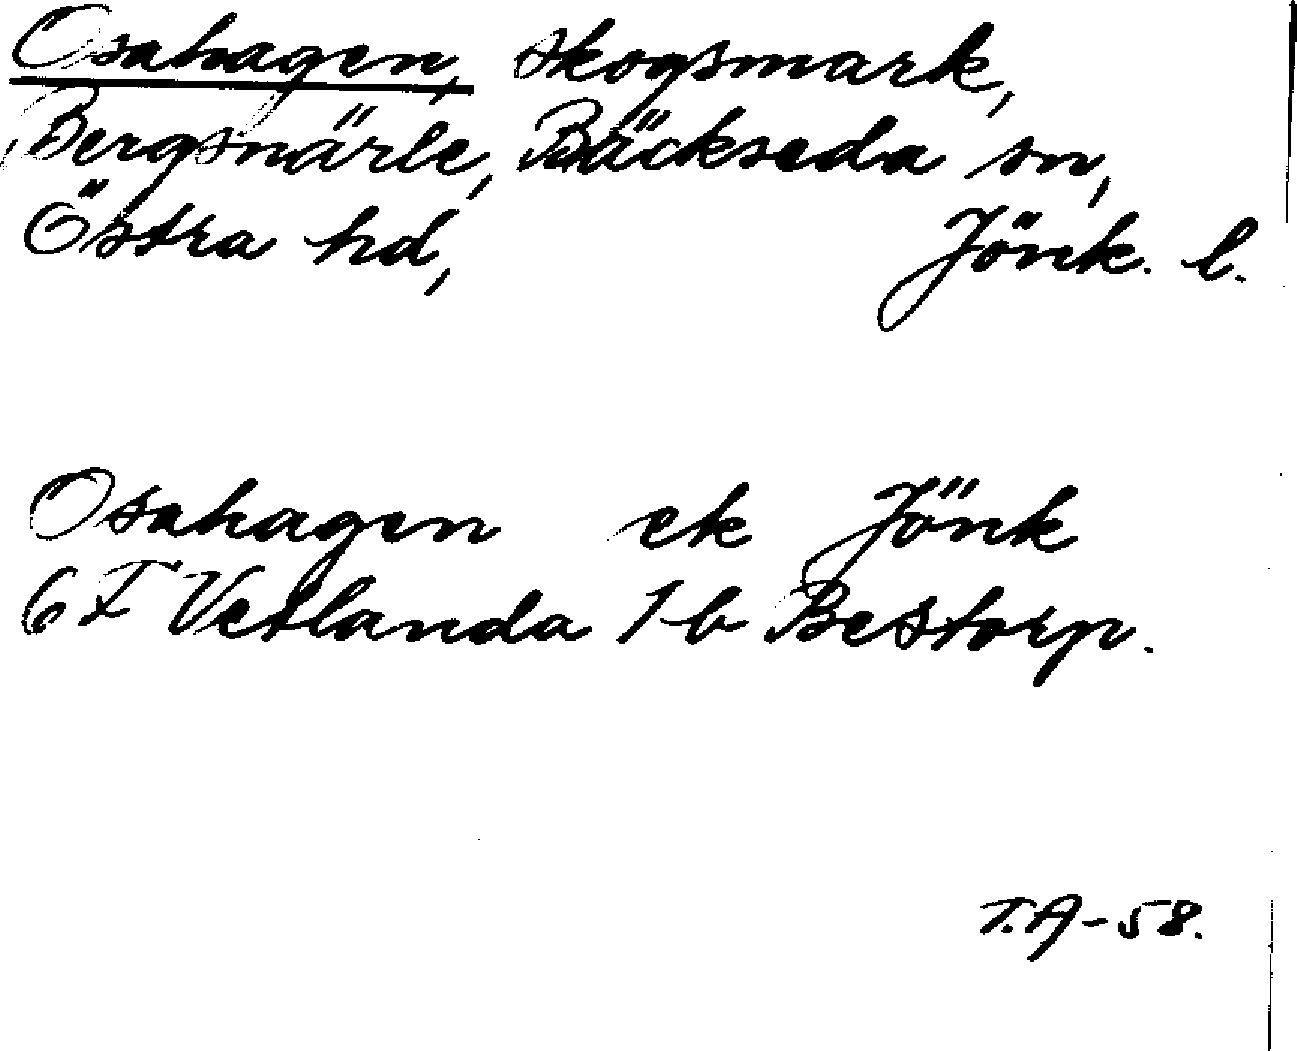 Osahagen, skogsmark,
Bergsnärle, Bäckseda sn,
Östra hd, Jönk. l.
Osahagen ek Jönk
6 F Vetlanda 1 b Bestorp.
T.A-58.